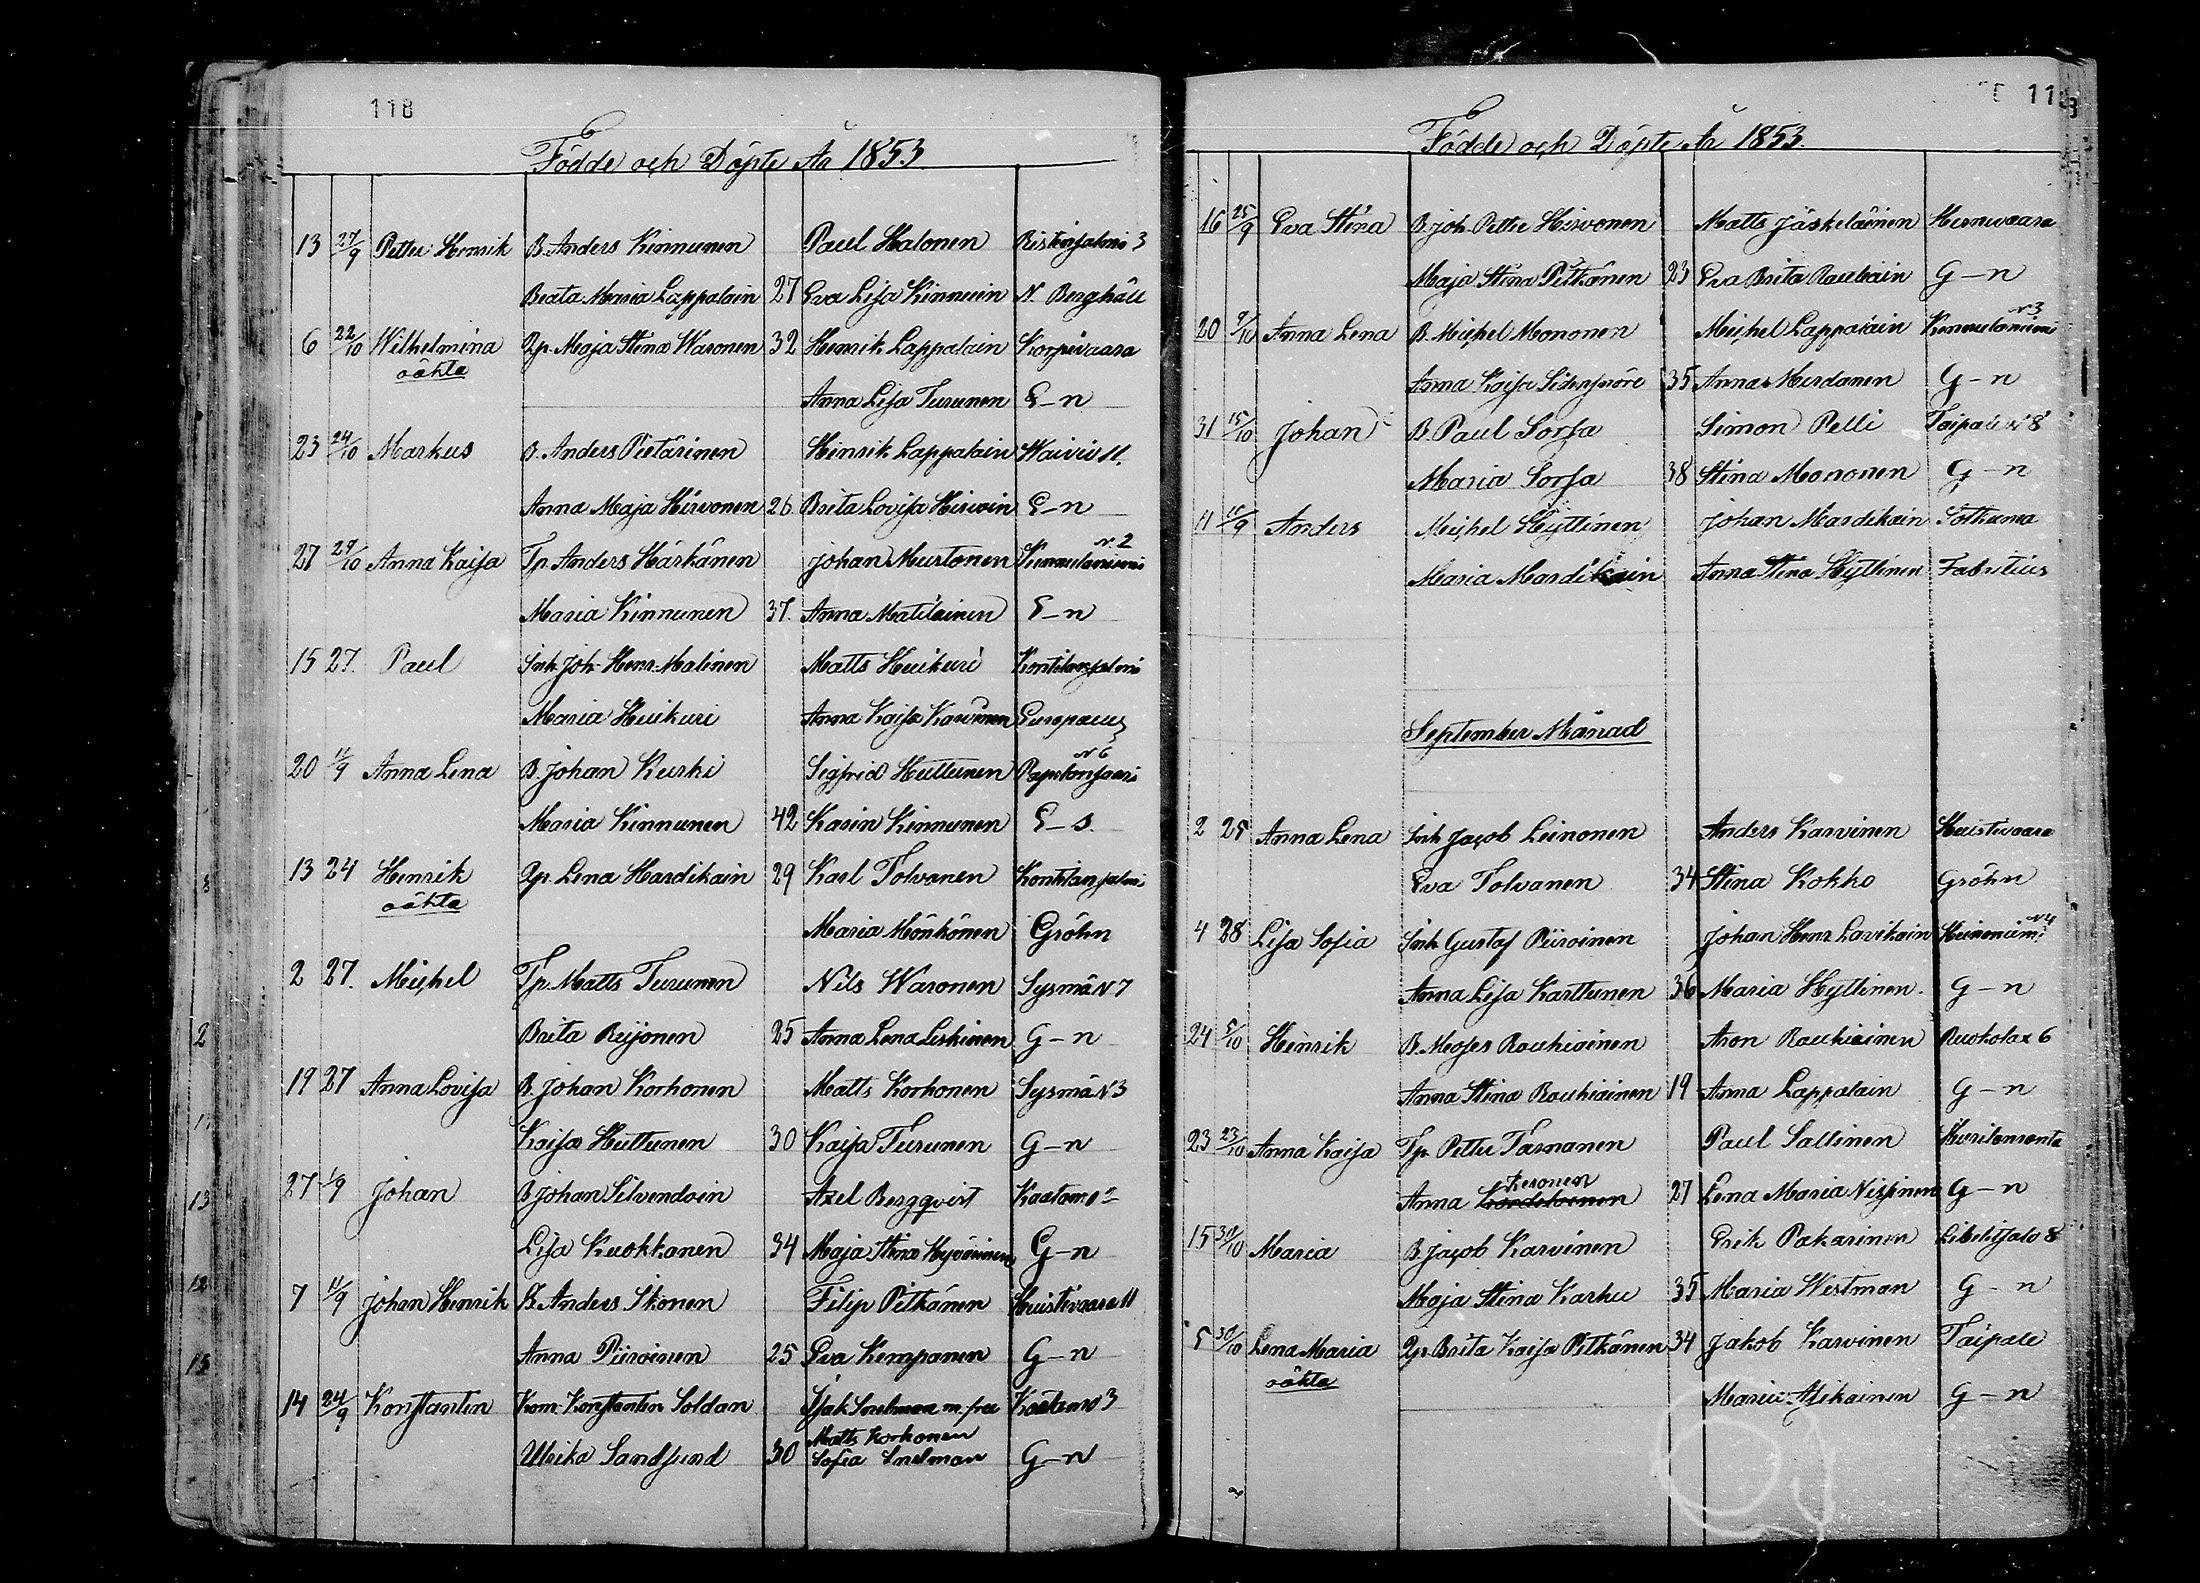 118
Födde och Döpte År 1853
13 27/9 Petter Henrik B. Anders Kinnunen Paul Halonen Ristinsalmi 3
Beata Maria Lappalain 27 Eva Lisa Kinnuin N. Berghäll
6 22/10 Wilhelmina Qp. Maja Stina Waronen 32 Henrik Lappalain Korpivaara
oäkta
Anna Lisa Turunen G-n
23 24/10 Markus B. Anders Pietärinen Henrik Lappalain Waivio 11.
Anna Maja Hirvonen 26 Brita Lovisa Hirvoin G-n
N. 2
27 29/10 Anna Kaisa Tp. Anders Härkänen Johan Mustonen Kunnulaniemi
Maria Kinnunen 37. Anna Matilainen G-n
15 27. Paul Inh. Joh. Henr. Malinen Matts Huikuri Kontilansalmi
Maria Huikuri Anna Kaisa Karvinen Europaeus
N 6
20 11/9 Anna Lena B. Johan Kurki Sigfrid Huttunen Papilonsaari
Maria Kinnunen 42 Karin Kinnunen G-s.
13 24 Henrik Qp. Lena Hardikain 29 Karl Tolvanen Kontilansalmi
oäkta
Maria Mönkönen Gröhn
2 27. Michel Tp. Matts Turunen Nils Waronen Sysmä N 7
Brita Reijonen 25 Anna Lena Leskinen G-n
19 27 Anna Lovisa B. Johan Korhonen Matts Korhonen Sysmä N 3
Kaisa Huttunen 30 Kaisa Turunen G-n
27 1/9 Johan B. Johan Silvendoin Axel Bergqvist Kaatamo
Lisa Kuokkanen 34 Maja Stina Hyvärinen G-n
7 11/9 Johan Henrik B. Anders Ikonen Filip Pitkänen Huistivaara 11
Anna Piiroinen 25 Eva Kempanen G-n
14 24/9 Konstantin Kom. Konstantin Soldan Isak Snelman m. fru Kaatamo 3
Matts Korhonen
Ulrika Sandsund 30 Sofia Snelman G-n
Födde och Döpte År 1853.
16 25/9 Eva Stina B. Joh. Petter Hirvonen Matts Jäskeläinen Hernevaara
Maja Stina Pitkänen 23 Eva Brita Rauhiain G-n
N 3
20 9/10 Anna Lena B. Michel Mononen Michel Lappalain Kunnulaniemi
Anna Kaisa Sidensnöre 35 Anna Murdanen G-n
31 15/10 Johan B. Paul Sorsa Simon Pelli Taipale N 8
Maria Sorsa 38 Stina Mononen G-n
11 11/9 Anders Michel Hyttinen Johan Mardikain Sotkuma
Maria Mardikain Anna Stina Hyttinen Fabritius
September Månad
2 25 Anna Lena Inh. Jacob Leinonen Anders Karvinen Huistivaara
Eva Tolvanen 34 Stina Kokko Gröhn
N 4
4 28 Lisa Sofia Inh. Gustaf Piiroinen Johan Henr. Lavikain Heinoniemi
Anna Lisa Karttunen 36 Maria Hyttinen. G-n
24 5/10 Henrik B. Moses Rauhiainen Aron Rauhiainen Ruokolax 6
Anna Stina Rauhiainen 19 Anna Lappalain G-n
23 23/10 Anna Kaisa Tp. Petter Tarnanen Paul Sallinen Kurilanranta
Kesonen
Anna 27 Lena Maria Nispinen G-n
15 30/10 Maria B. Jacob Karvinen Erik Pakarinen Libelitsalo 8
Maja Stina Karhu 35 Maria Westman G-n
5 30/10 Lena Maria Qp. Brita Kaisa Pitkänen 34 Jakob Karvinen Taipale
oäkta
Maria Mikainen G-n